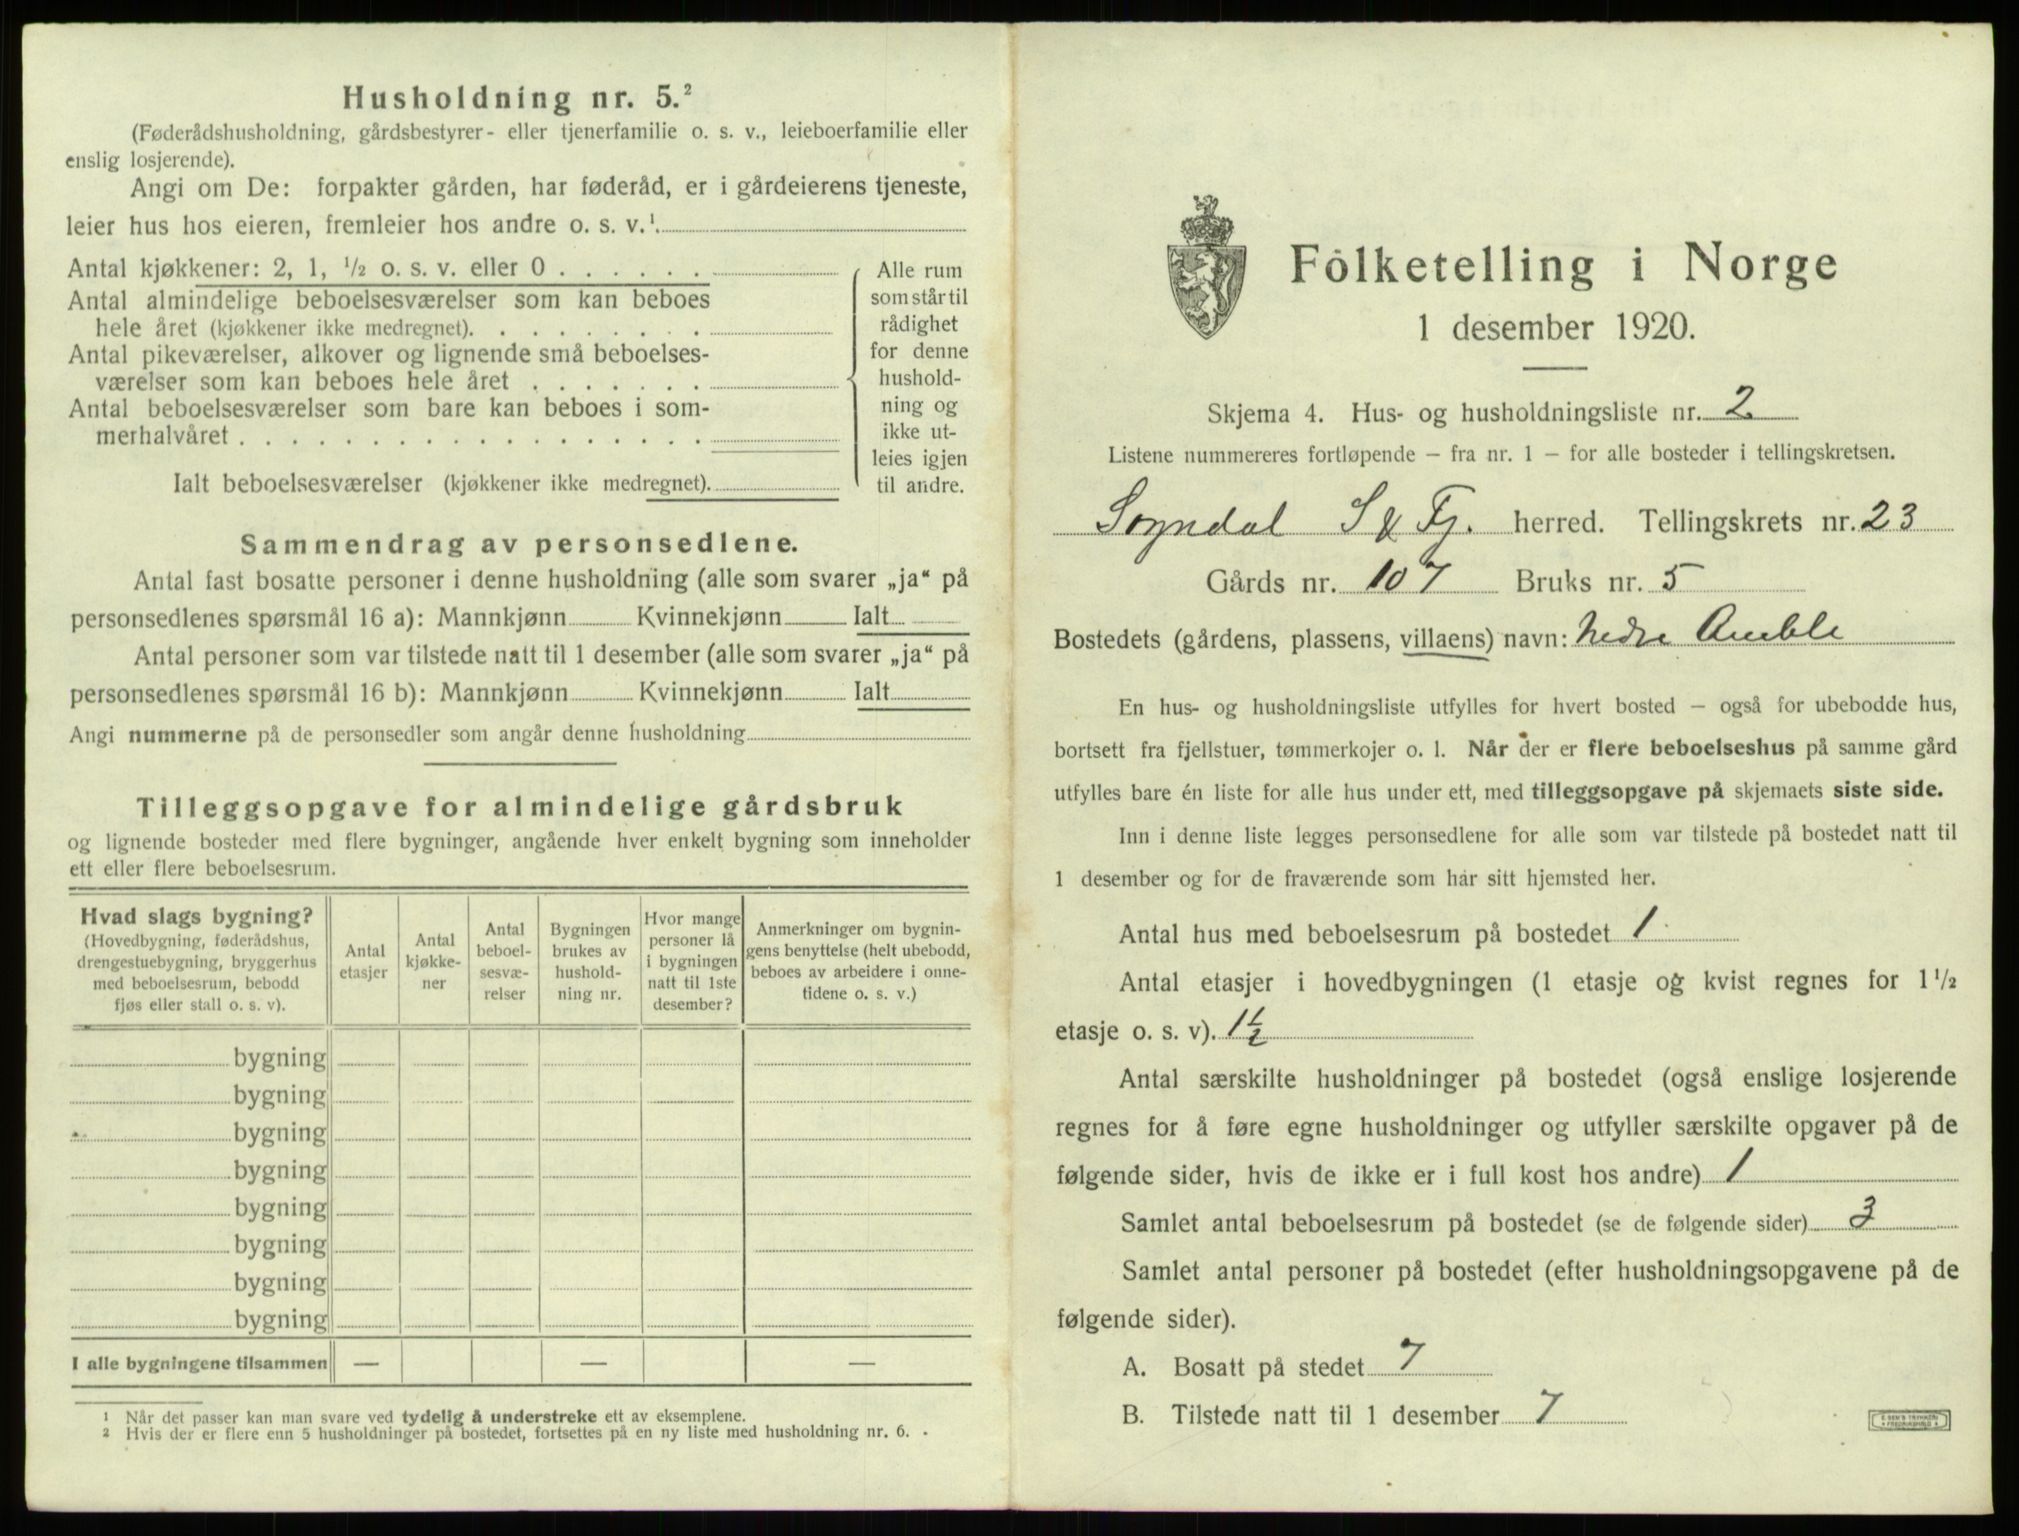 Husholdning nr. 5.²
(Føderådshusholdning, gårdsbestyrer- eller tjenerfamilie o. s. v., leieboerfamilie eller
enslig losjerende).
Angi om De: forpakter gården, har føderåd, er i gårdeierens tjeneste,
leier hus hos eieren, fremleier hos andre o. s. v.¹
Antal kjøkkener: 2, 1, ½ o. s. v. eller 0 . . . . . .
Antal almindelige beboelsesværelser som kan beboes
hele året (kjøkkener ikke medregnet). . . . . . . . .
Antal pikeværelser, alkover og lignende små beboelses-
værelser som kan beboes hele året . . . . . . .
Antal beboelsesværelser som bare kan beboes i som-
merhalvåret . . . . . . . . . . . . . . . . . .
Ialt beboelsesværelser (kjøkkener ikke medregnet).
Alle rum
som står til
rådighet
for denne
hushold-
ning og
ikke ut-
leies igjen
til andre.
Sammendrag av personsedlene.
Antal fast bosatte personer i denne husholdning (alle som svarer „ja“ på
personsedlenes spørsmål 16 a): Mannkjønn Kvinnekjønn Ialt
Antal personer som var tilstede natt til 1 desember (alle som svarer „ja“ på
personsedlenes spørsmål 16 b): Mannkjønn Kvinnekjønn Ialt
Angi nummerne på de personsedler som angår denne husholdning
Tilleggsopgave for almindelige gårdsbruk
og lignende bosteder med flere bygninger, angående hver enkelt bygning som inneholder
ett eller flere beboelsesrum.
Hvad slags bygning?
(Hovedbygning, føderådshus,
drengestuebygning, bryggerhus
med beboelsesrum, bebodd
fjøs eller stall o. s. v).
Antal
etasjer
Antal
kjøkke-
ner
Antal
beboel-
sesvæ-
relser
Bygningen
brukes av
hushold-
ning nr.
Hvor mange
personer lå
i bygningen
natt til 1ste
desember?
Anmerkninger om bygnin-
gens benyttelse (helt ubebodd,
beboes av arbeidere i onne-
tidene o. s. v.)
bygning
bygning
bygning
bygning
bygning
bygning
bygning
bygning
I alle bygningene tilsammen — — —
¹ Når det passer kan man svare ved tydelig å understreke ett av eksemplene.
² Hvis der er flere enn 5 husholdninger på bostedet, fortsettes på en ny liste med husholdning nr. 6.
Folketelling i Norge
1 desember 1920.
Skjema 4. Hus- og husholdningsliste nr. 2
Listene nummereres fortløpende — fra nr. 1 — for alle bosteder i tellingskretsen.
Sogndal S & Fj. herred. Tellingskrets nr. 23
Gårds nr. 107 Bruks nr. 5
Bostedets (gårdens, plassens, villaens) navn: Nedre Amble
En hus- og husholdningsliste utfylles for hvert bosted — også for ubebodde hus,
bortsett fra fjellstuer, tømmerkojer o. l. Når der er flere beboelseshus på samme gård
utfylles bare én liste for alle hus under ett, med tilleggsopgave på skjemaets siste side.
Inn i denne liste legges personsedlene for alle som var tilstede på bostedet natt til
1 desember og for de fraværende som har sitt hjemsted her.
Antal hus med beboelsesrum på bostedet 1
Antal etasjer i hovedbygningen (1 etasje og kvist regnes for 1½
etasje o. s. v). 1½
Antal særskilte husholdninger på bostedet (også enslige losjerende
regnes for å føre egne husholdninger og utfyller særskilte opgaver på de
følgende sider, hvis de ikke er i full kost hos andre) 1
Samlet antal beboelsesrum på bostedet (se de følgende sider) 3
Samlet antal personer på bostedet (efter husholdningsopgavene på de
følgende sider).
A. Bosatt på stedet 7
B. Tilstede natt til 1 desember 7